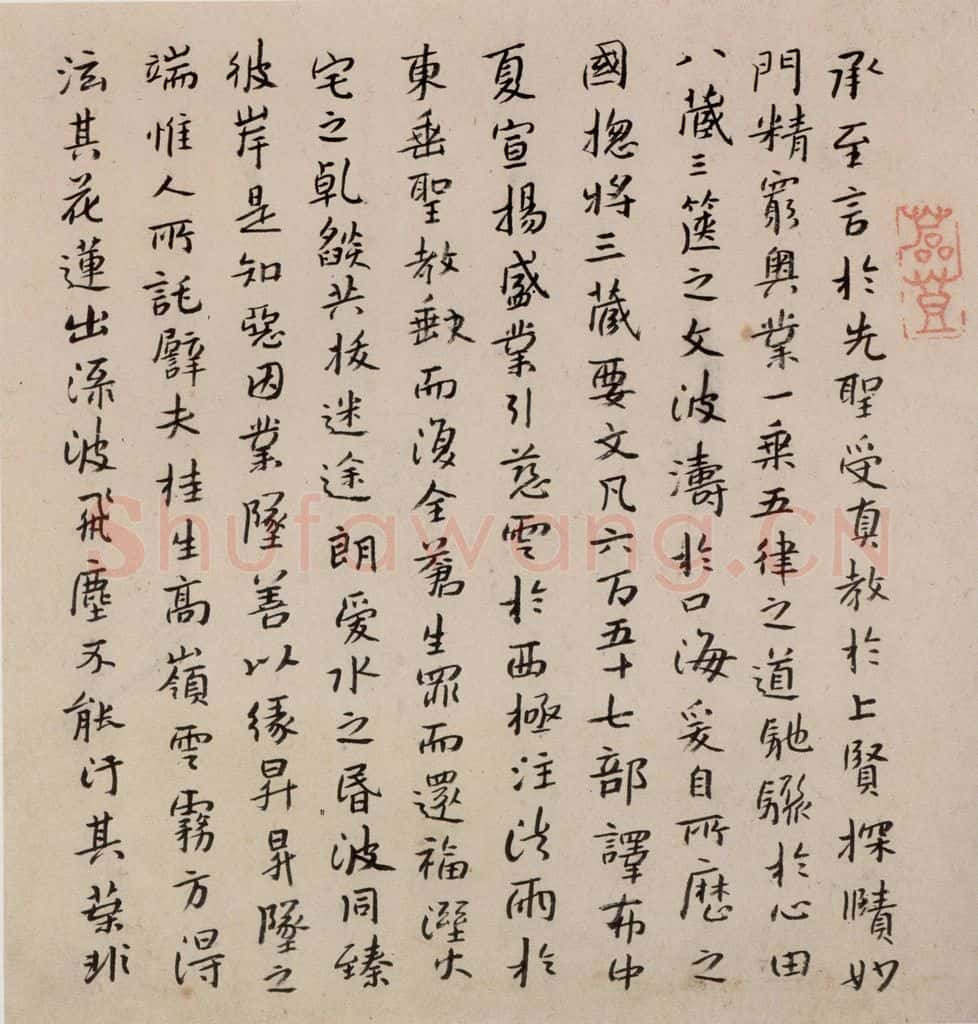 承至言於先聖受真教於上賢探賾妙
門精窮奧業一乘五律之道馳驟於心田
八藏三篋之文波濤於口海爰自所歷之
國揔將三藏要文凡六百五十七部譯布中
夏宣揚盛業引慈雲於西極注法雨於
東垂聖教缺而復全蒼生罪而還福溼火
宅之乾燄共拔迷途朗愛水之昏波同臻
彼岸是知惡因業墜善以緣昇昇墜之
端惟人所託譬夫桂生高嶺雲霧方得
泫其花蓮出淥波飛塵不能汙其葉非
Shufawang.CN